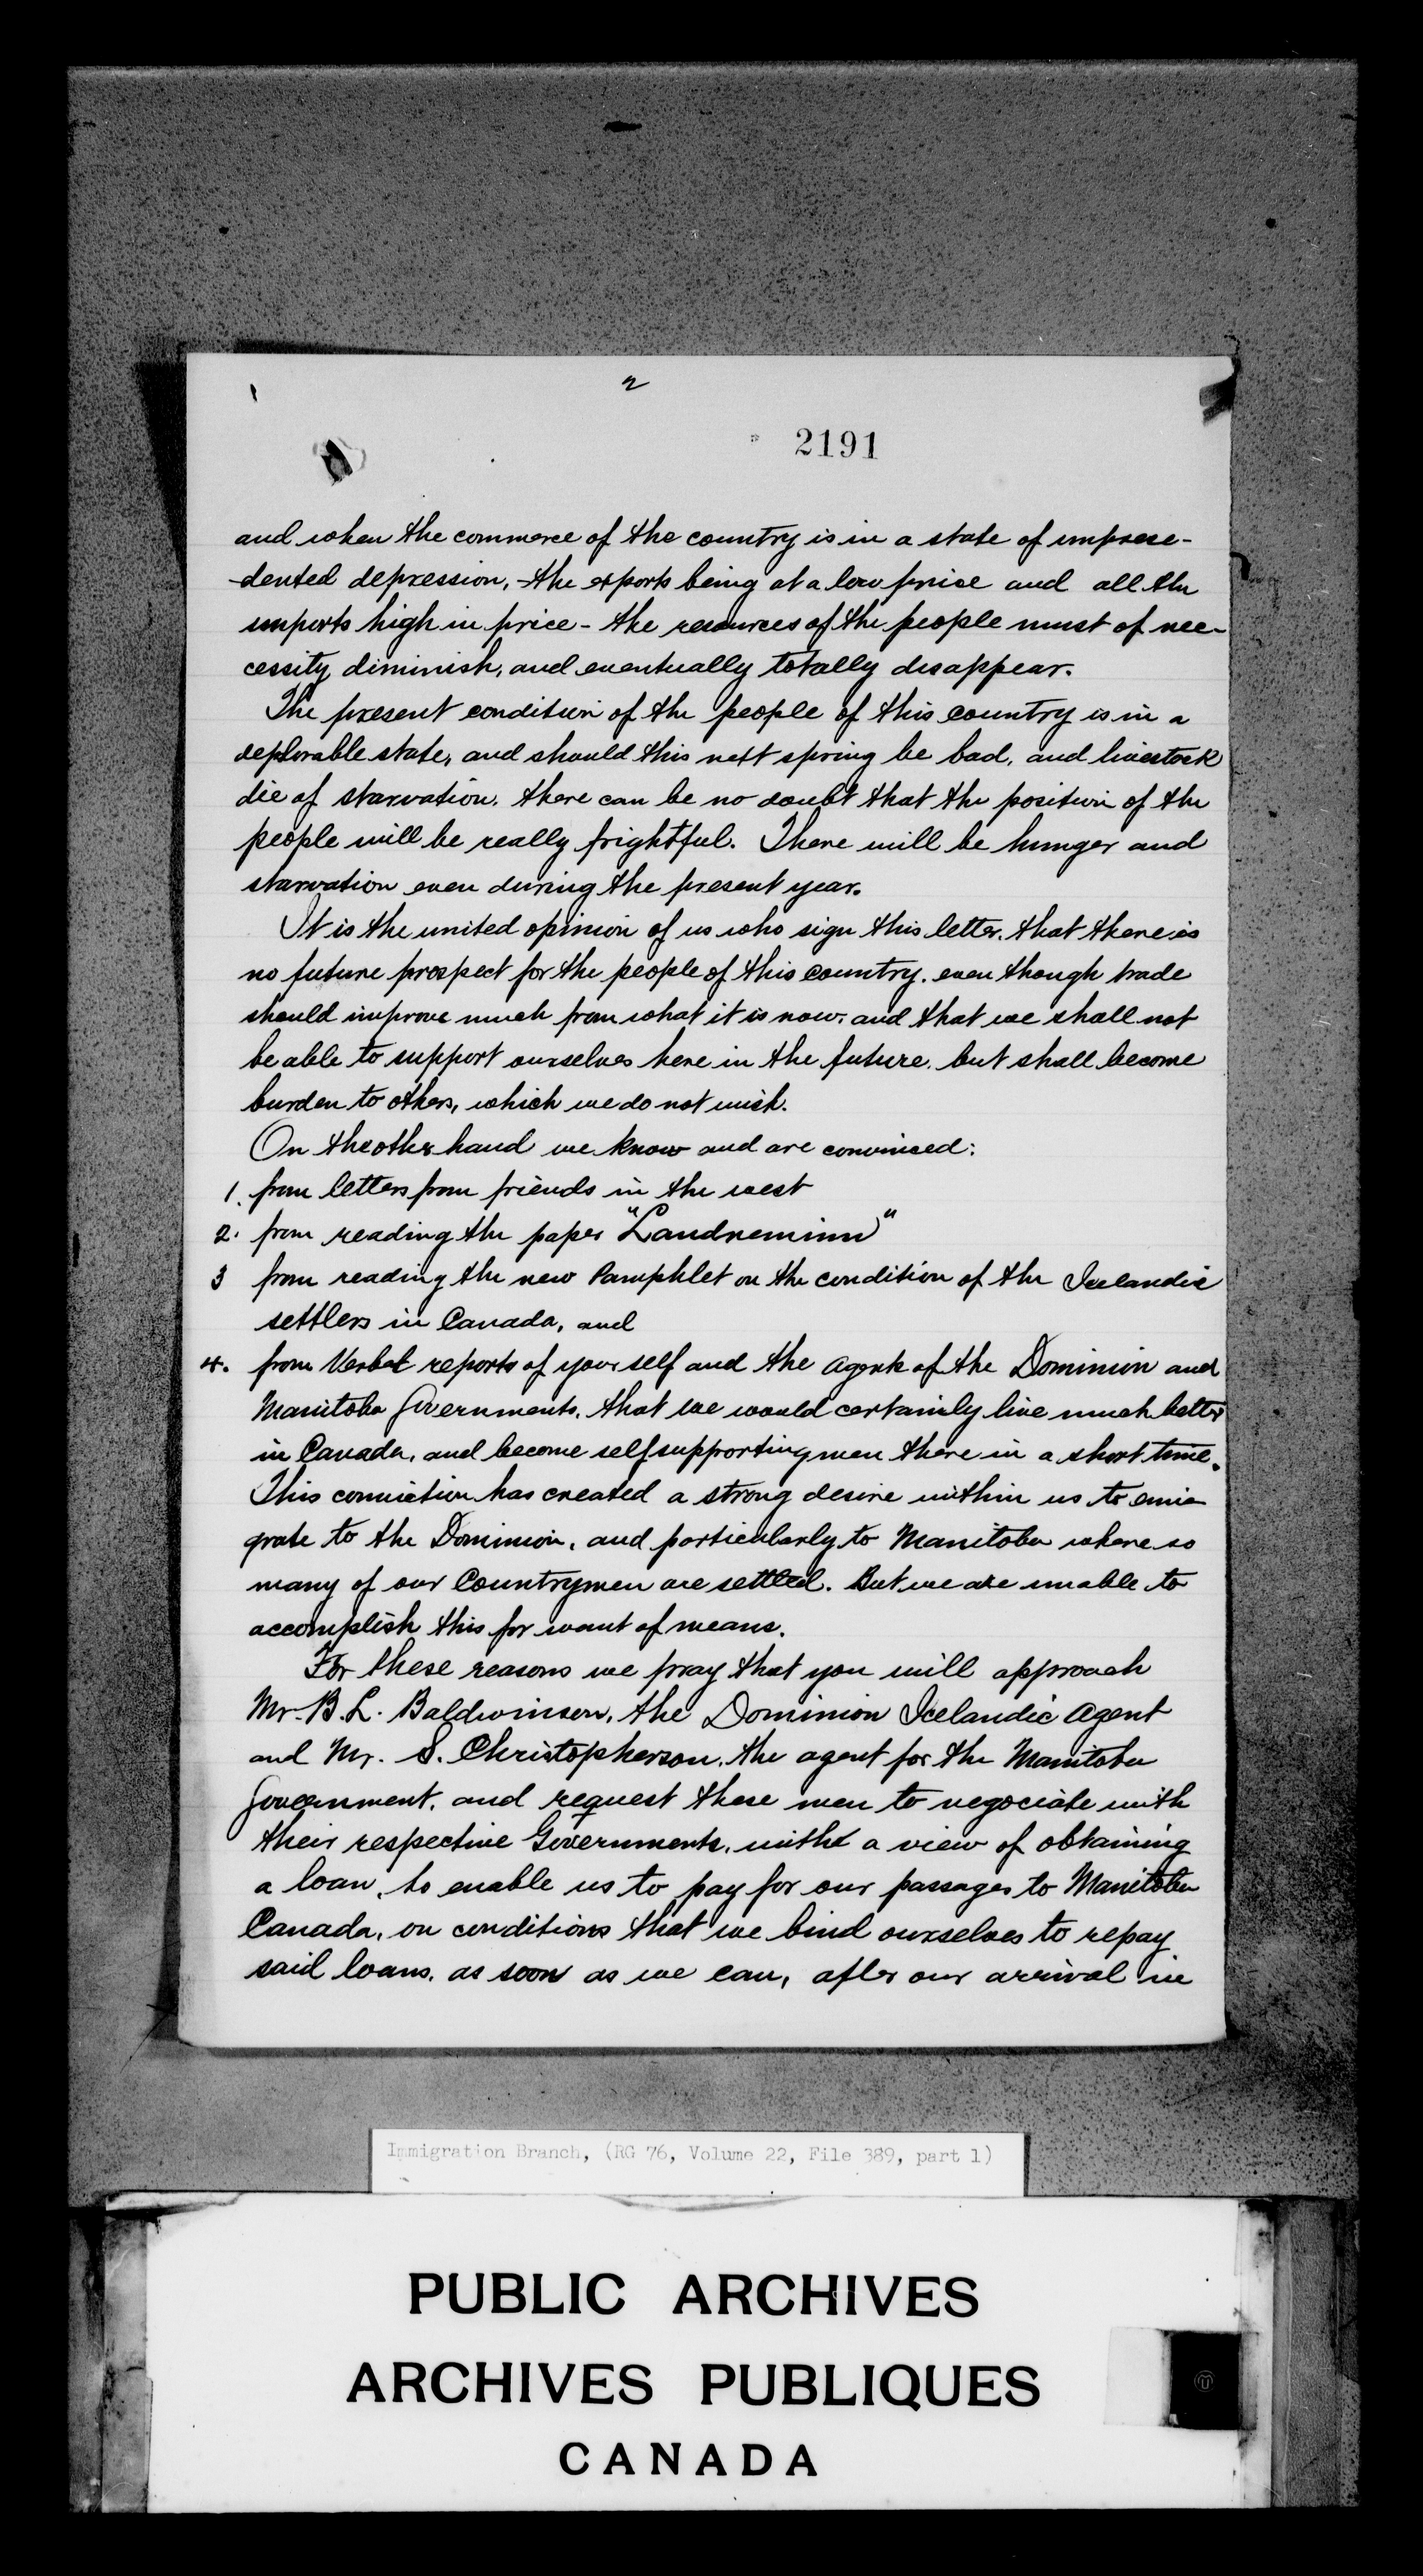 2
2191
and when the commerce of the country is in a state of unprese-
-dented depression, - the exports being at a low price and all the
imports high in price - the resources of the people must of nec-
cessity diminish, and eventually totally disappear.
The present condition of the people of this country is in a
deplorable state, and should this next spring be bad, and livestock
die of starvation, there can be no doubt that the position of the
people will be really frightful. There will be hunger and
starvation even during the present year.
It is the united opinion of us who sign this letter, that there is
no future prospect for the people of this country, even though trade
should improve much from what it is now, and that we shall not
be able to support ourselves here in the future, but shall become
burden to others, which we do not wish.
On the other hand we know and are convinced:
1. from letters from friends in the west
2. from reading the paper "Landneminn"
3 from reading the new Pamphlet on the condition of the Icelandic
settlers in Canada, and
4. from Verbal reports of your self and the agents of the Dominion and
Manitoba Governments, that we would certainly live much better
in Canada, and become self supporting men there in a short time.
This conviction has created a strong desire within us to emi-
grate to the Dominion, and particularly to Manitoba where so
many of our Countrymen are settled. But we are unable to
accomplish this for want of means.
For these reasons we pray that you will approach
Mr. B. L. Baldwinson, the Dominion Icelandic Agent
and Mr. S. Christopherson, the agent for the Manitoba
Government, and request these men to negociate with
their respective Governments, with a view of obtaining
a loan, to enable us to pay for our passages to Manitoba
Canada, on conditions that we bind ourselves to repay
said loans, as soon as we can, after our arrival in
Immigration Branch, (RG 76, Volume 22, File 389, part 1)
PUBLIC ARCHIVES
ARCHIVES PUBLIQUES
CANADA